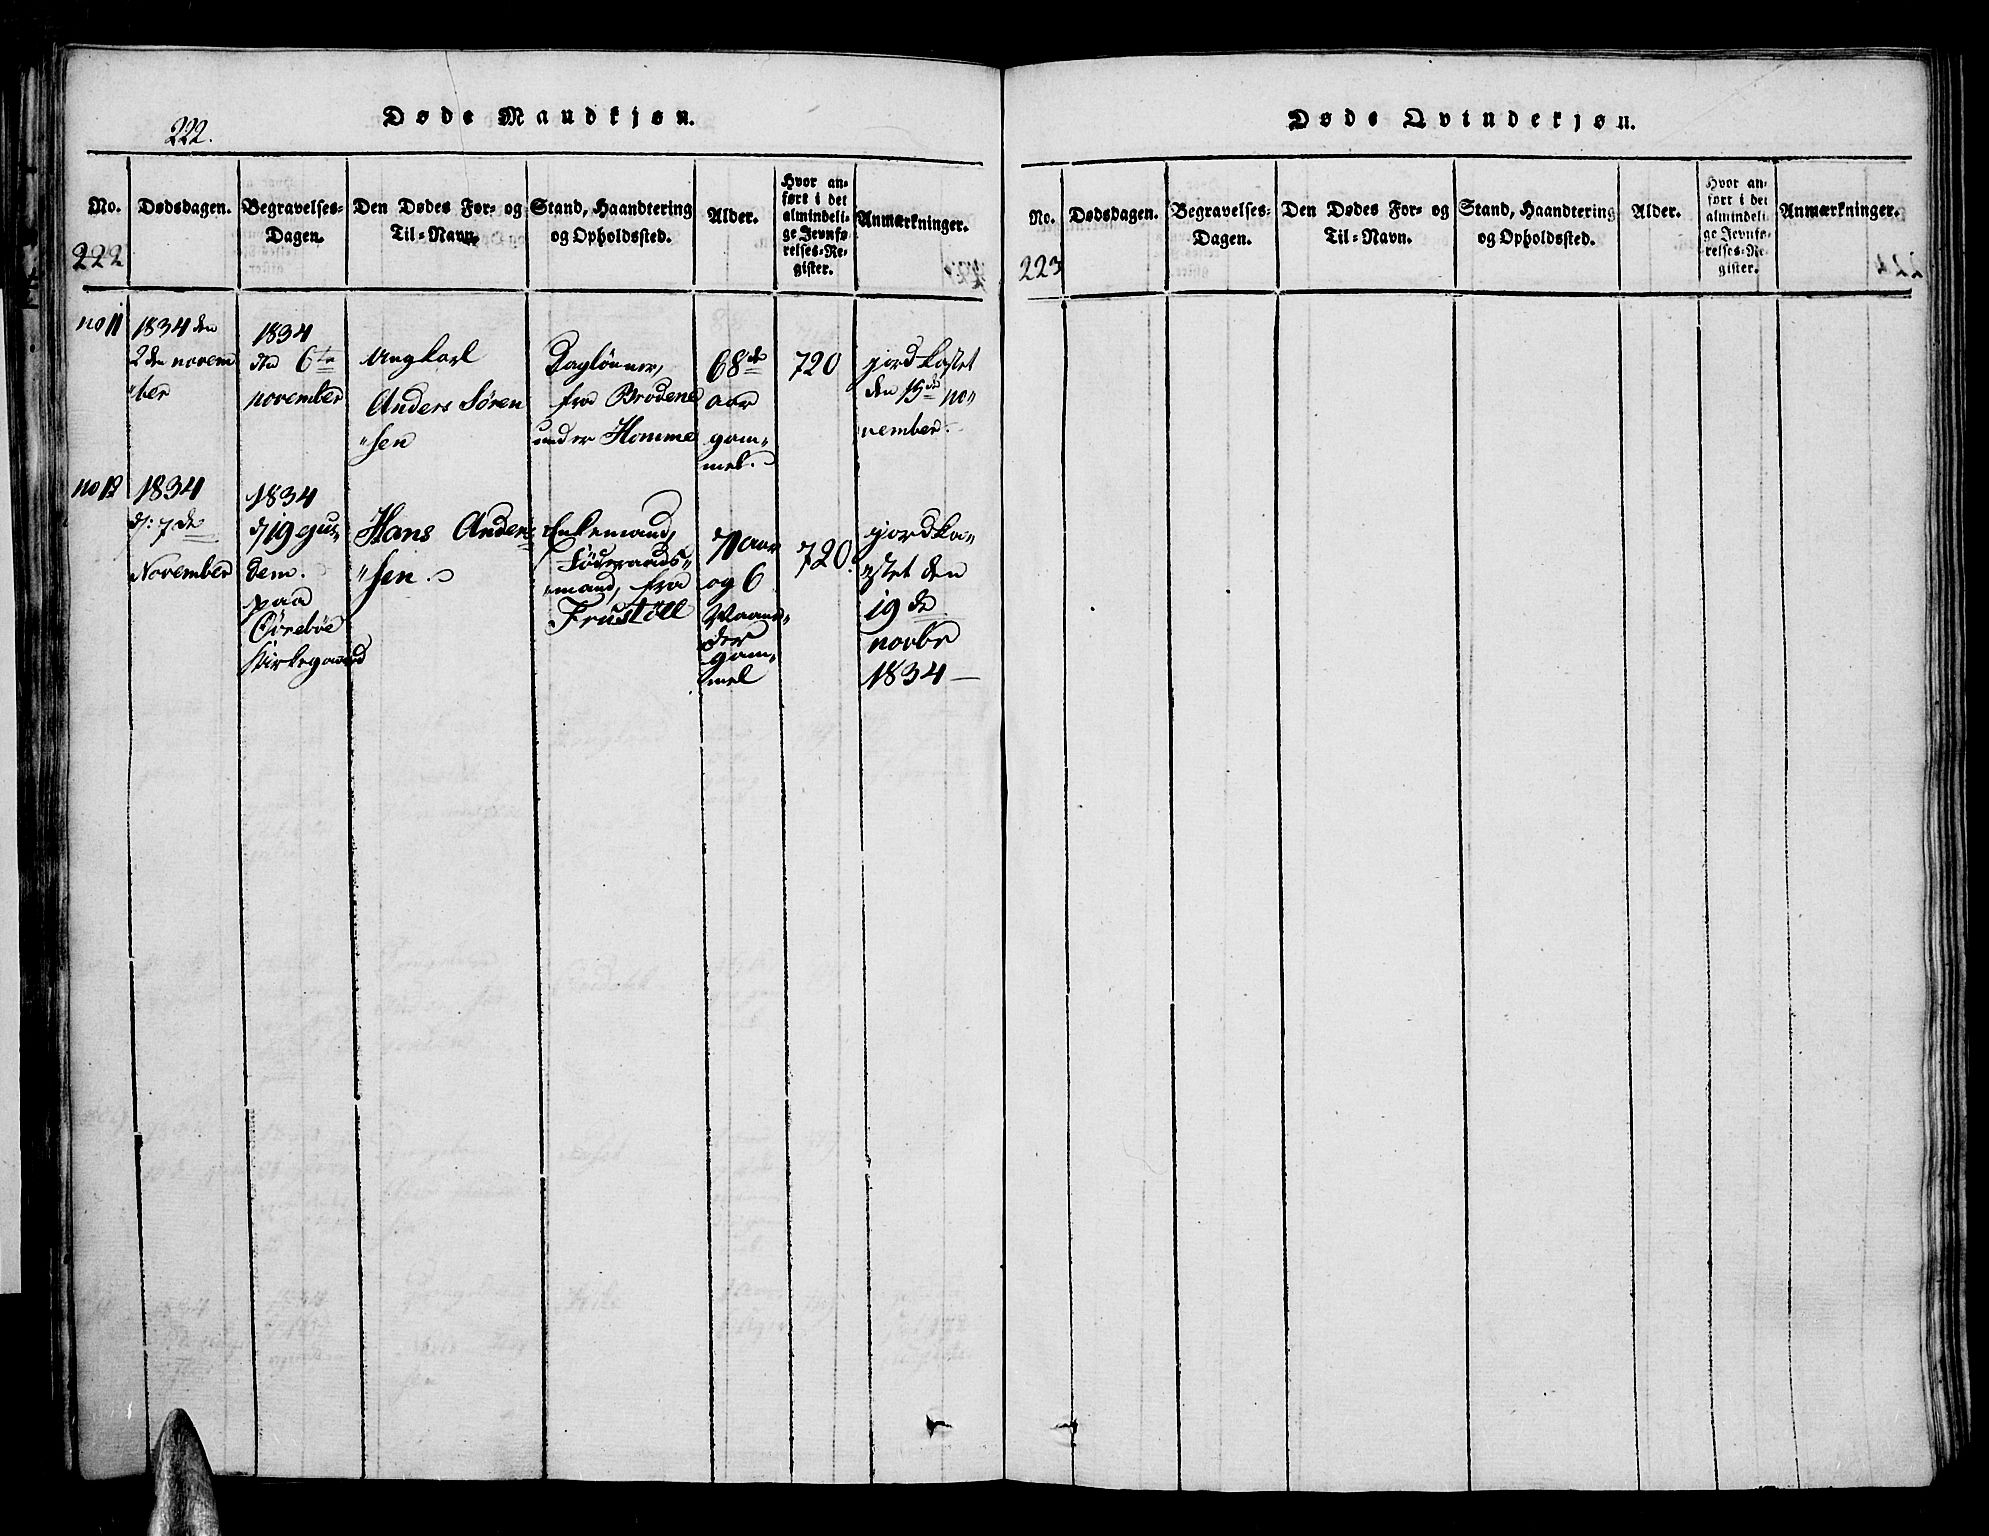 222.
Døde Mandkjøn.
No.
Dødsdagen.
Begravelses-
Dagen.
Den Dødes For- og
Til-Navn.
Stand, Haandtering
og Opholdssted.
Alder.
Hvor an-
ført i det
almindeli-
ge Jevnfø-
relses-Re-
gister.
Anmærkninger.
222
no 11
1834 den
2 den novem
"ber
1834
den 6te
november
Ungkarl
Anders Sören
"sen
Daglönner,
fra Brødene
under Homme
68de
aar
gam-
mel.
720
jord kastet
den 15de no-
vember.
no 12
1834
d: 7de
November
1834
d 19 ejus-
dem.
paa
Öirebøe
Kirkegaard
Hans Ander-
"sen.
Enkemand,
Föderaads-
mand, fra
Frustöll
71 aar
og 6
Maane-
der
gam-
mel
720.
jord ka-
stet den
19de
novbr
1834 —
Døde Qvindekjøn.
No.
Dødsdagen.
Begravelses-
Dagen.
Den Dødes For- og
Til-Navn.
Stand, Haandtering
og Opholdssted.
Alder.
Hvor an-
ført i det
almindeli-
ge Jevnfø-
relses-Re-
gister.
Anmærkninger.
223